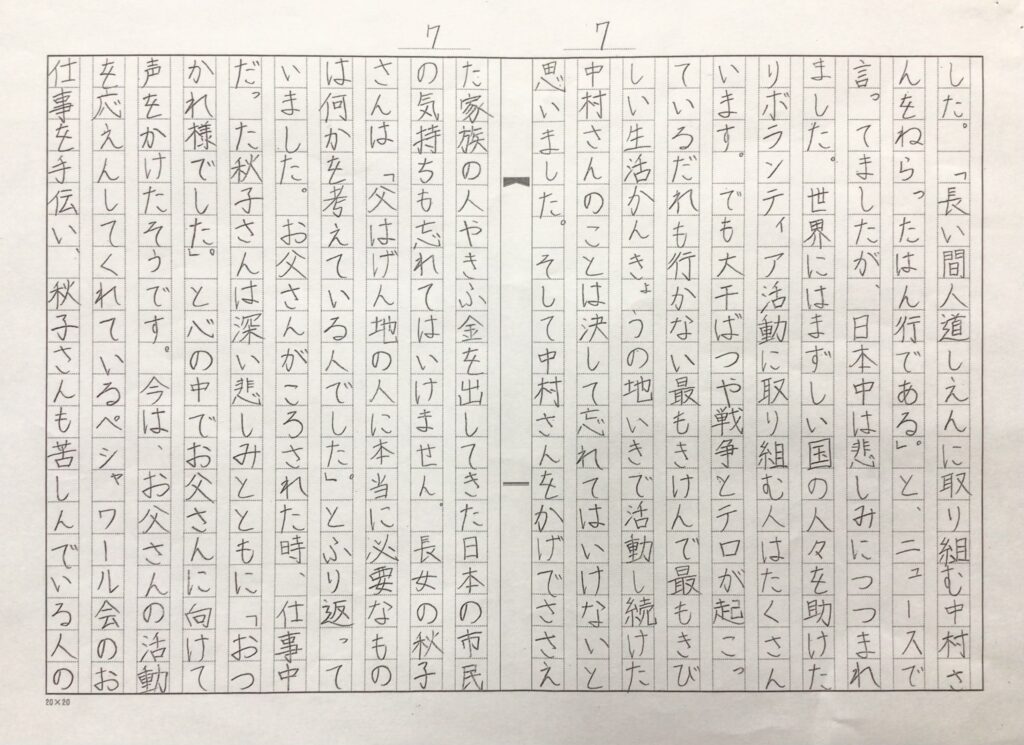 7
7
した。「長い間人道しえんに取り組む中村さ
んをねらったはん行である」。と、ニュースで
言ってましたが、日本中は悲しみにつつまれ
ました。世界にはまずしい国の人々を助けた
りボランティア活動に取り組む人はたくさん
います。でも大干ばつや戦争とテロが起こっ
ているだれも行かない最もきけんで最もきび
しい生活かんきょうの地いきで活動し続けた
中村さんのことは決して忘れてはいけないと
思いました。そして中村さんをかげでささえ
た家族の人やきふ金を出してきた日本の市民
の気持ちも忘れてはいけません。長女の秋子
さんは「父はげん地の人に本当に必要なもの
は何かを考えている人でした」。とふり返って
いました。お父さんがころされた時、仕事中
だった秋子さんは深い悲しみとともに「おつ
かれ様でした」。と心の中でお父さんに向けて
声をかけたそうです。今は、お父さんの活動
を応えんしてくれているペシャワール会のお
仕事を手伝い、秋子さんも苦しんでいる人の
20×20